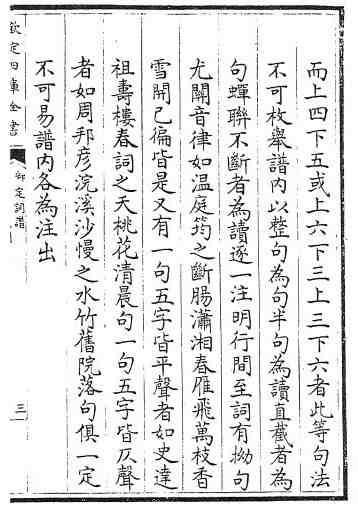 而上四下五或上六下三上三下六者此等句法
不可枚舉譜内以整句為句半句為讀直截者為
句蟬聯不斷者為讀逐一注明行間至詞有拗句
尤關音律如温庭筠之斷腸瀟湘春雁飛萬枝香
雪開已徧皆是又有一句五字皆平聲者如史達
祖壽樓春詞之夭桃花清晨句一句五字皆仄聲
者如周邦彦浣溪沙慢之水竹舊院落句俱一定
不可易譜内各為注出
欽定四庫全書
御定詞譜
三